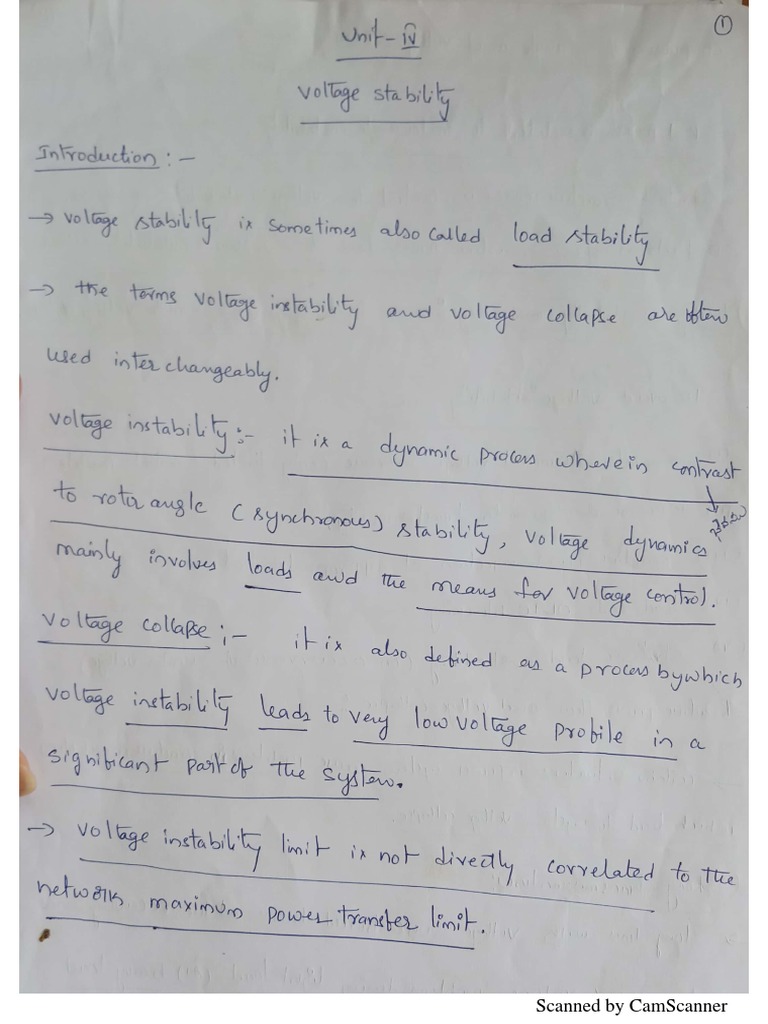 ①
Unit - iv
Voltage stability
Introduction :-
→ voltage stability is sometimes also called load stability
→ the terms voltage instability and voltage collapse are often
used interchangeably.
voltage instability :- it is a dynamic process wherein contrast
to rotor angle (synchronous) stability, voltage dynamics
mainly involves loads and the means for voltage control.
voltage collapse :- it is also defined as a process by which
voltage instability leads to very low voltage profile in a
significant part of the system.
→ voltage instability limit is not directly correlated to the
network maximum power transfer limit.
Scanned by CamScanner